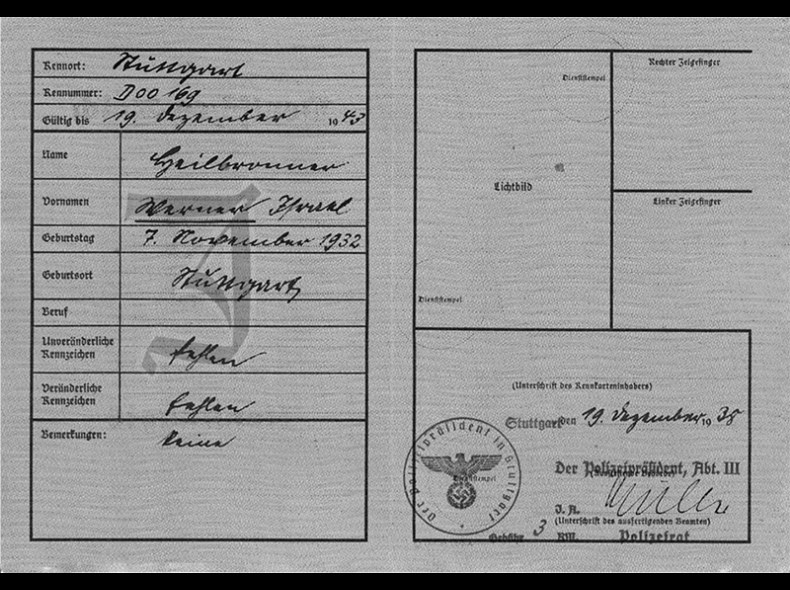 Kennort: Stuttgart
Kennummer: D00169
Gültig bis 19. Dezember 1943
Name Heilbronner
Vornamen Werner Israel
Geburtstag 7. November 1932
Geburtsort Stuttgart
Beruf
Unveränderliche Kennzeichen fehlen
Veränderliche Kennzeichen fehlen
Bemerkungen: keine
J
Dienststempel
Rechter Zeigefinger
Lichtbild
Linker Zeigefinger
Dienststempel
(Unterschrift des Kennkarteninhabers)
Stuttgart, den 19. Dezember 1938
Der Polizeipräsident in Stuttgart
Dienststempel
Der Polizeipräsident, Abt. III
J. A.
(Unterschrift des ausfertigenden Beamten)
Gebühr 3 RM. Polizeirat